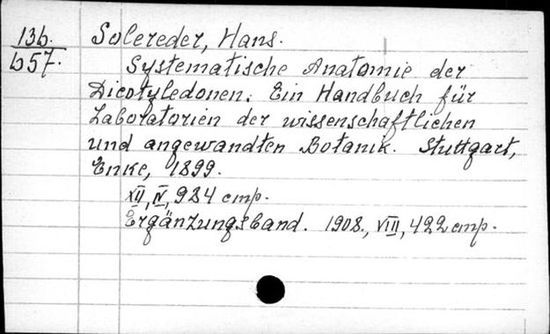 13b. Solereder, Hans.
b57. Systematische Anatomie der
Dicotyledonen. Ein Handbuch für
Laboratorien der wissenschaftlichen
und angewandten Botanik. Stuttgart,
Enke, 1899.
XII, IV, 984 стр.
Ergänzungsband. 1908., VIII, 422 стр.